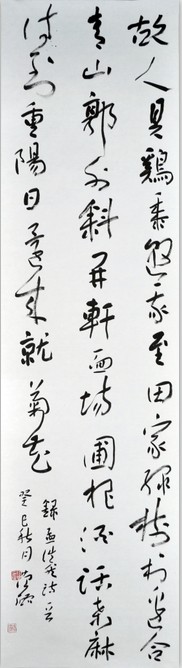 故人具鷄黍邀我至田家綠樹村邊合
青山郭外斜開軒面場圃把酒話桑麻
待到重陽日還來就菊花
録孟浩然詩
癸巳秋月